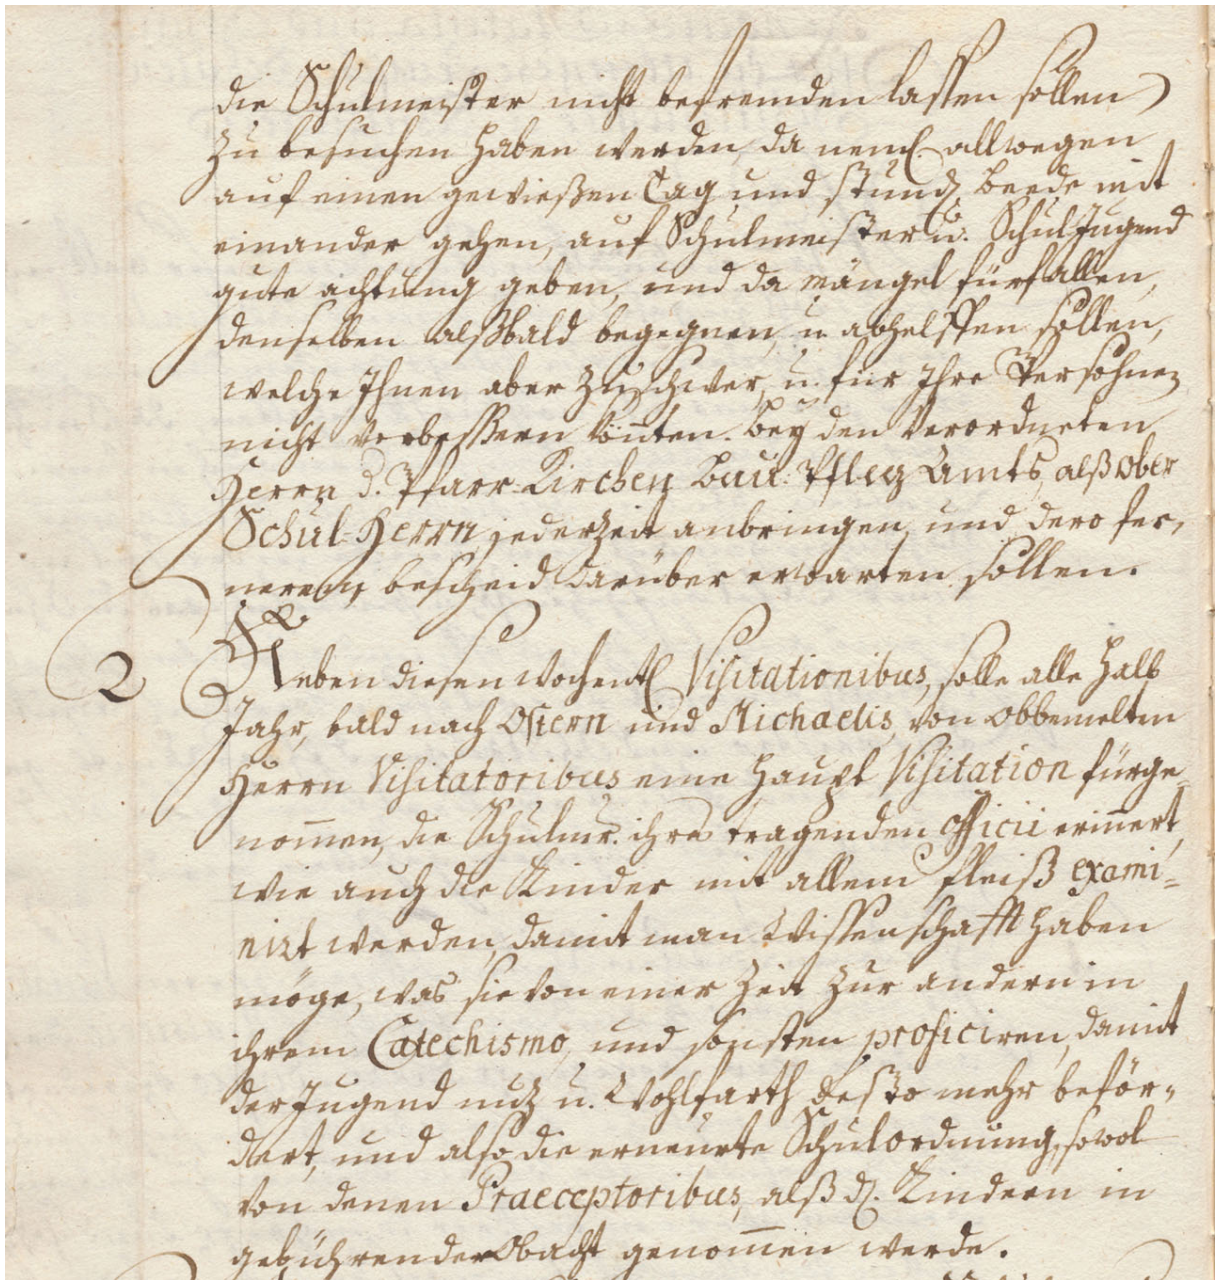 die Schulmeister nicht befremden lassen sollen)
zu besuchen haben werden, da neml. allwegen
auf einen gewießen Tag und stund, beede mit
einander gehen, auf Schulmeister u. SchulJugend
gute achtung geben, und da mängel fürfallen,
denselben alßbald begegnen, u. abhelffen sollen,
welche Ihnen aber zuschwer, u. für Ihre Persohnen
nicht verbessern könten. Bey den Verordneten
Herrn d. Pfarr-Kirchen Bau: Pfleg Amts, alß Ober
Schul-Herrn, jederzeit anbringen, und dero fer-
neren bescheid darüber erwarten sollen.
2 Neben diesen wochentl. Visitationibus, solle alle halb
Jahr, bald nach Ostern und Michaelis, von obbemelten
Herrn Visitatoribus eine Haupt Visitation fürge-
nom̅en, die Schulmr. ihres tragenden Officii erin̅ert,
wie auch die Kinder mit allem fleiß exami-
nirt werden, damit man Wissenschafft haben
möge, was sie von einer Zeit zur andern in
ihrem Catechismo, und sonsten proficiren, damit
der Jugend nuz u. Wohlfarth desto mehr beför-
dert, und also die erneurte Schulordnung, sowol
von denen Praeceptoribus, alß d. Kindern in
gebührender Obacht genom̅en werde.